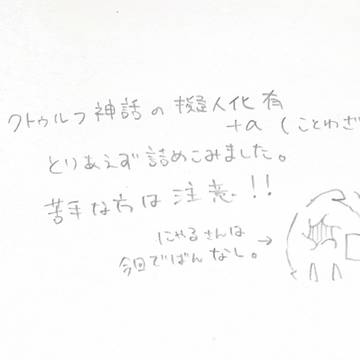 クトゥルフ神話の擬人化有
+α (ことわざ
とりあえず詰めこみました。
苦手な方は注意!!
にゃるさんは →
今回でばんなし。